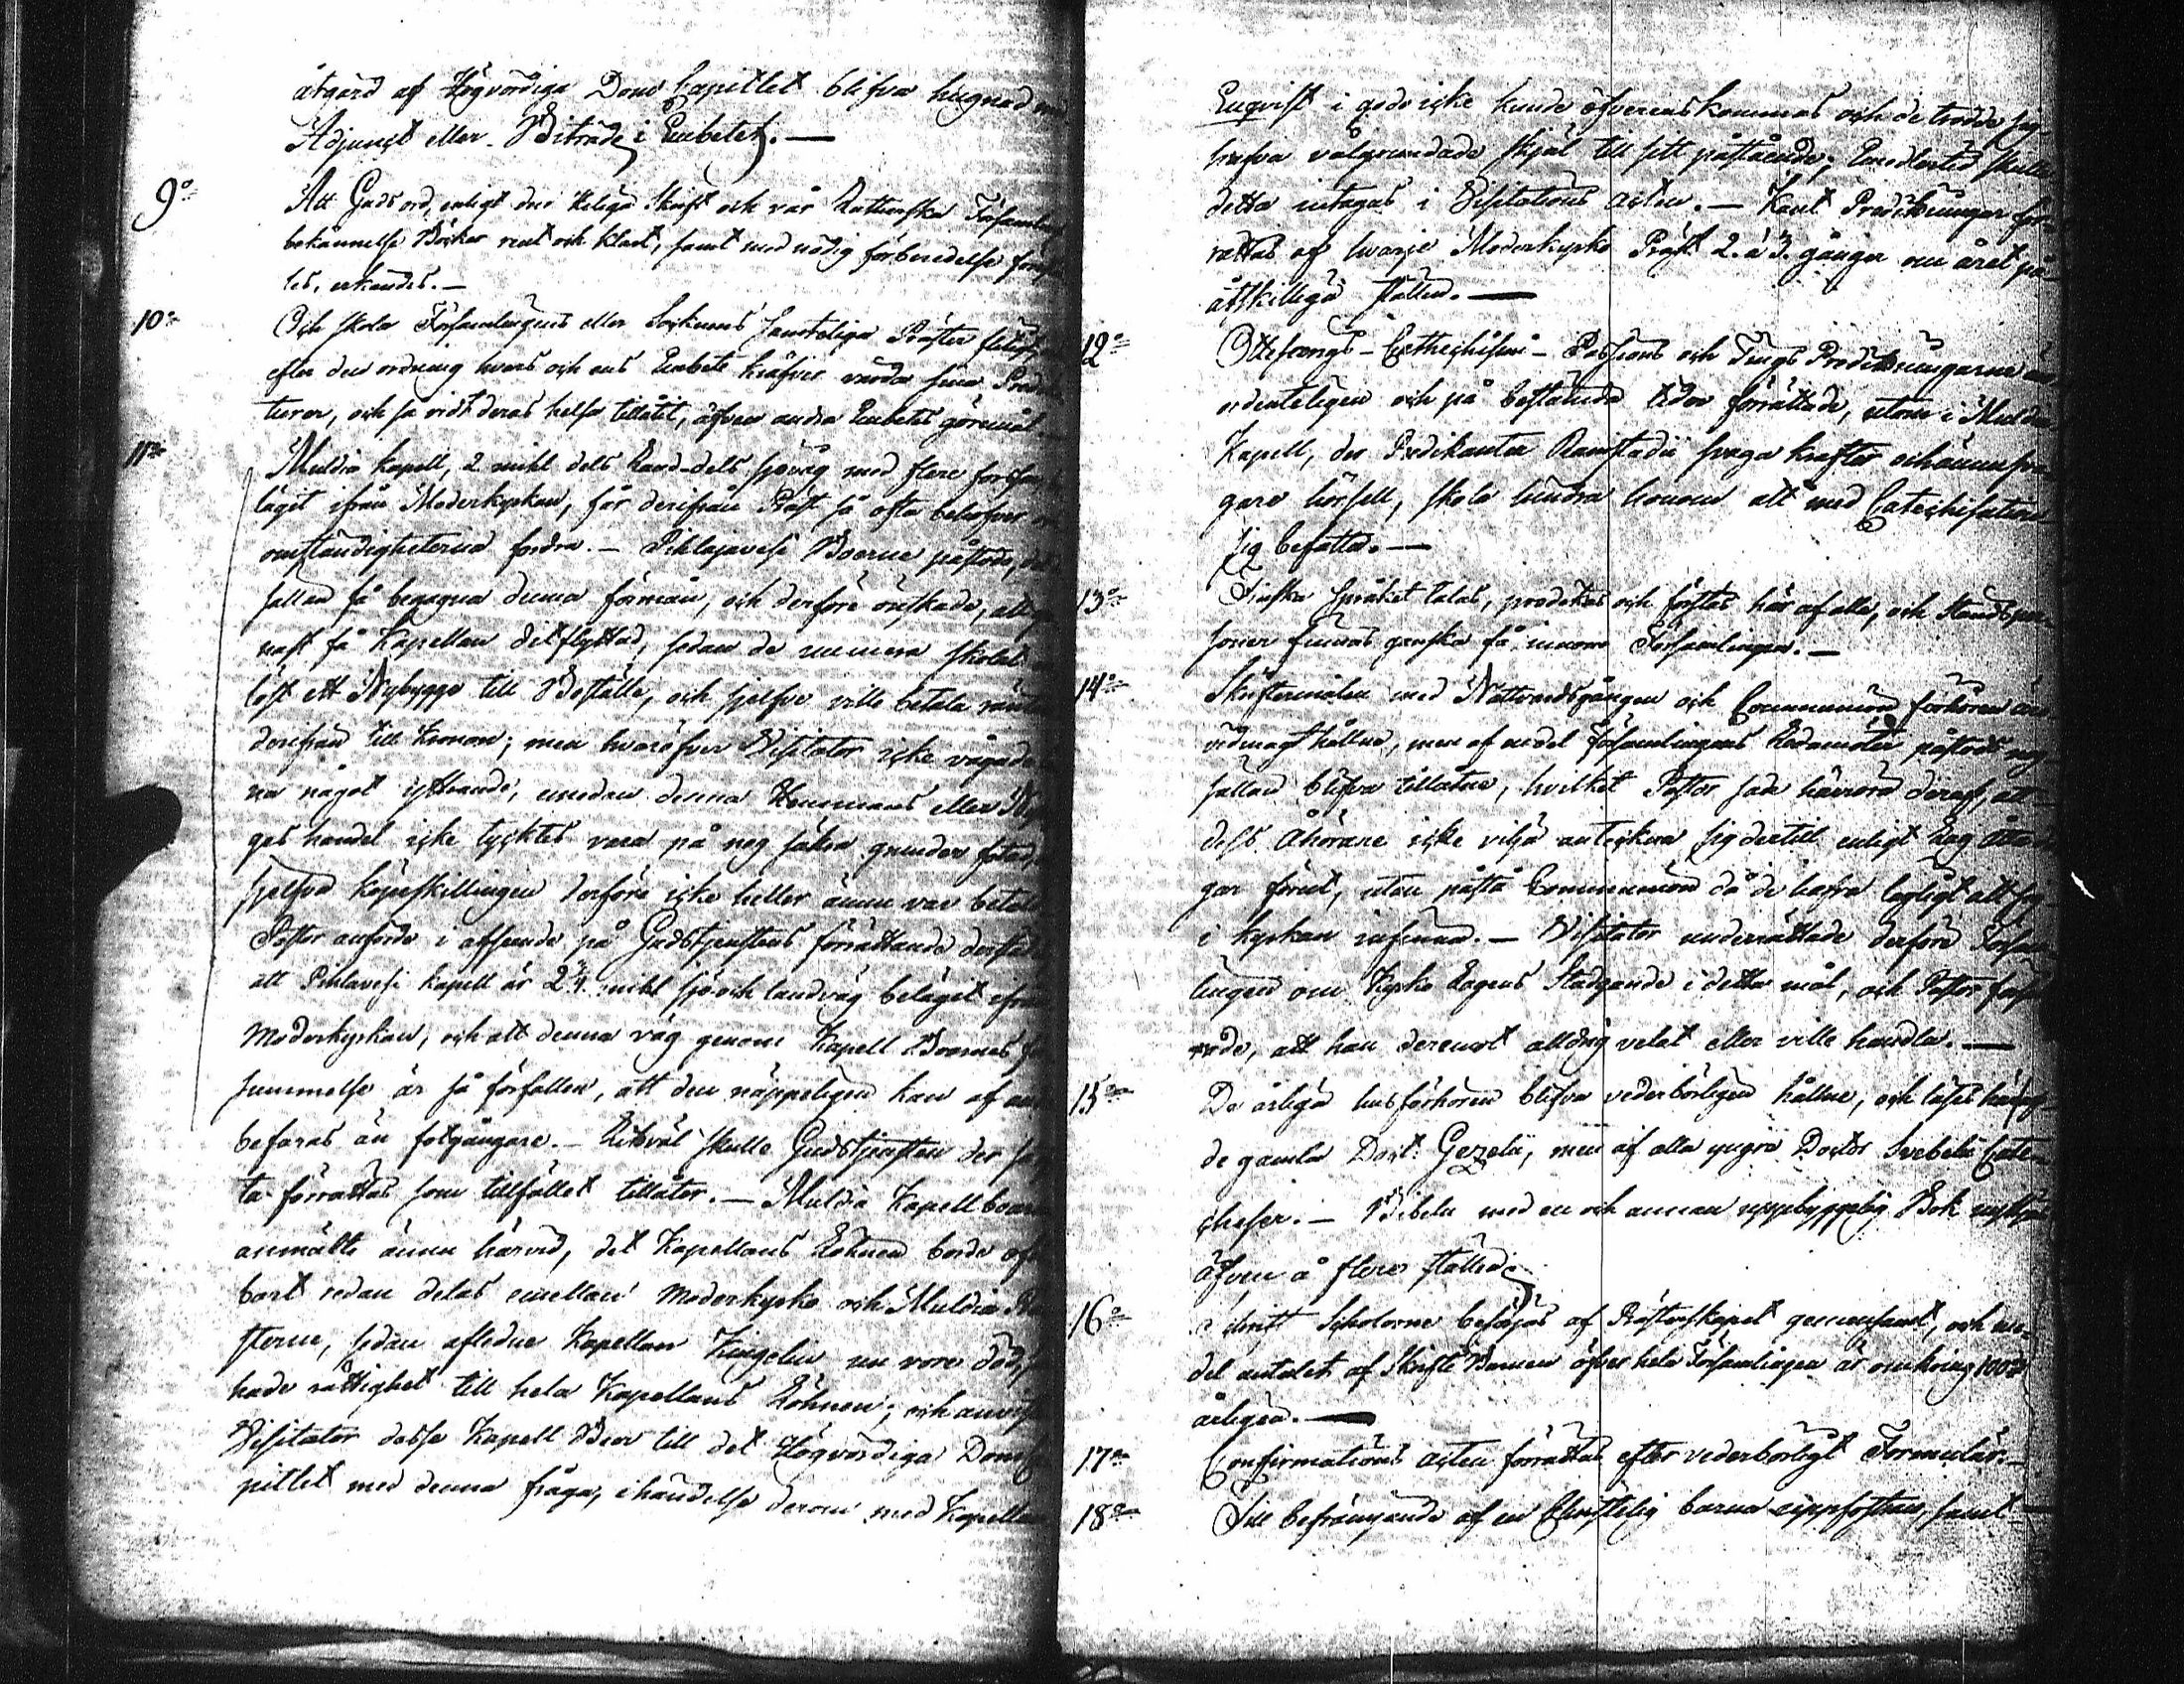 åtgärd af Högvördiga Dom Capitlet blifva hugnad
Adjunct eller Biträde i Embetet. —
9o Att Guds ord, enligt den Heliga Skrift och vår Lutherska Församlings
bekännelse Böcker rent och klart, samt med nödig förberedelse
tes, erkändes. —
10o Och skola Församlingens eller Socknens samteliga Präster
efter den ordning hvars och ens Embete kräfver vårda sina
turer, och så vidt deras helsa tillåtit, äfven andra Embets göremål.
11o Muldia Kapell, 2 mihl dels Land- dels sjöväg med flere forssar
läget ifrån Moderkyrkan, får derifrån Präst så ofta behofver
omständigheterna fordra. — Pihlajavesi Boerne påstodo,
sällan få begagna denna förmån, och derföre önskade, att
nast få Kapellan ditflyttad, sedan de numera skola
löst ett Nybygge till Boställe, och sjelfve ville betala ränta
derifrån till Kronan; men hvaröfver Visitator icke vågade
na något yttrande, emedan denna Hemmans eller
ges handel icke tycktes vara på nog säkra grunder
sjelfva köpeskillingen derföre icke heller ännu var betald
Pastor anförde i afseende på Gudstjenstens förrättande
att Pihlavesi Kapell är 2 3/4 mihl sjö och landväg beläget ifrån
Moderkyrkan, och att denna väg genom Kapell Boernes
summelse är så förfallen, att den näppeligen kan af
befaras än fotgängare. — Likväl skulle Gudstjensten der
ta förrättas som tillfället tillåter. — Muldia Kapellboerne
anmälte ännu härvid, det Kapellans Lönen borde
bart redan delas emellan Moderkyrko och Muldia
sterne, sedan aflidne Kapellan Kingelin nu vore död,
hade rättighet till hela Kapellans Lönen; och
Visitator desse Kapell Boer till det Högvördiga Dom
pitlet med denna fråga, i händelse derom med Kapellan
Enqvist i godo icke kunde öfverenskommas och de trodde sig
hafva välgrundade skjäl till sitt påstående; Emedlertid skulle
detta intagas i Visitations Acten. — Kant Predikningar för-
rättas af hvarje Moderkyrko Präst 2. à 3. gånger om året på
åtskilliga ställen. —
12o Ottesongs - Cathechismi - Passions och Tings Predikningarne
ordenteligen och på bestämda tider förrättade, utom i Muldia
Kapell, der Predikanten Ramstadii svaga krafter och ännu sva-
gare hörsell, skola hindra honom att med Catechisation
sig befatta. —
13o Finska språket talas, predikas och förstås här af alla, och Ståndsper-
soner finnas ganska få inom Församlingen. —
14o Skriftermålen med Nattvardsgången och Communion förhören
vidmagthållne, men af en del Församlingens Ledamöter påstods
sällan blifva tillåtne, hvilket Pastor sade härröra deraf, att
dess åhörare icke vilja anteckna sig dertill enligt Lag åtta
gar förut, utan påstå Communion då de hafva lägligt att sig
i kyrkan infinna. — Visitator underrättade derföre Försam-
lingen om Kyrko Lagens Stadgande i detta mål, och Pastor
rade, att han deremot alldrig velat eller ville handla. —
15o De årliga husförhören blifva vederbörligen hållne, och läses
de gamla Doct. Gezelii, men af alla yngre Doctor Svebelii Cate-
cheser. — Bibeln med en och annan uppbyggelig Bok
äfven å flere ställen.
16o Scholorne besörjas af Prästerskapet gemensamt, och
del antalet af Skrifte Barnen öfver hela Församlingen är omkring 100
årligen. —
17o Confirmations Acten förrättas efter vederbörligt Formulär. —
18o Till befrämjande af en Christelig barna uppfostran, samt